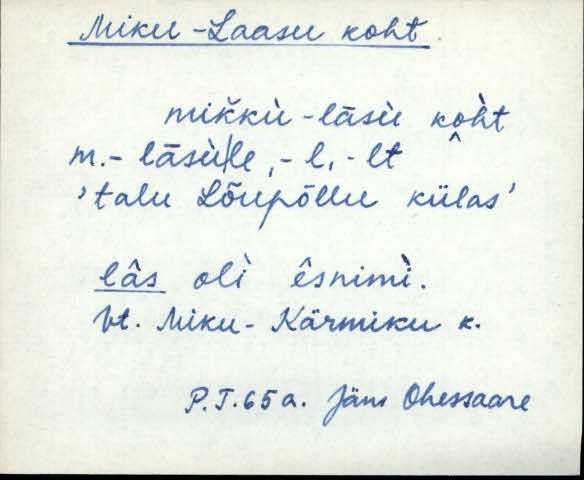 Miku-Laasu koht
mik̆kù-lāsù kòht
m.- lāsù|le, -l, -lt
'talu Lõupõllu külas'
lâs oli êsnimì.
Vt. Miku-Kärmiku k.
P.T. 65 a. Jäms Ohessaare